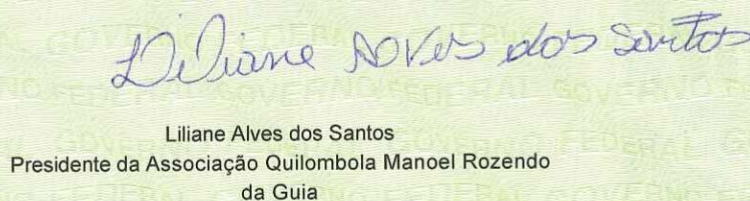 Liliane Alves dos Santos
Liliane Alves dos Santos
Presidente da Associação Quilombola Manoel Rozendo
da Guia